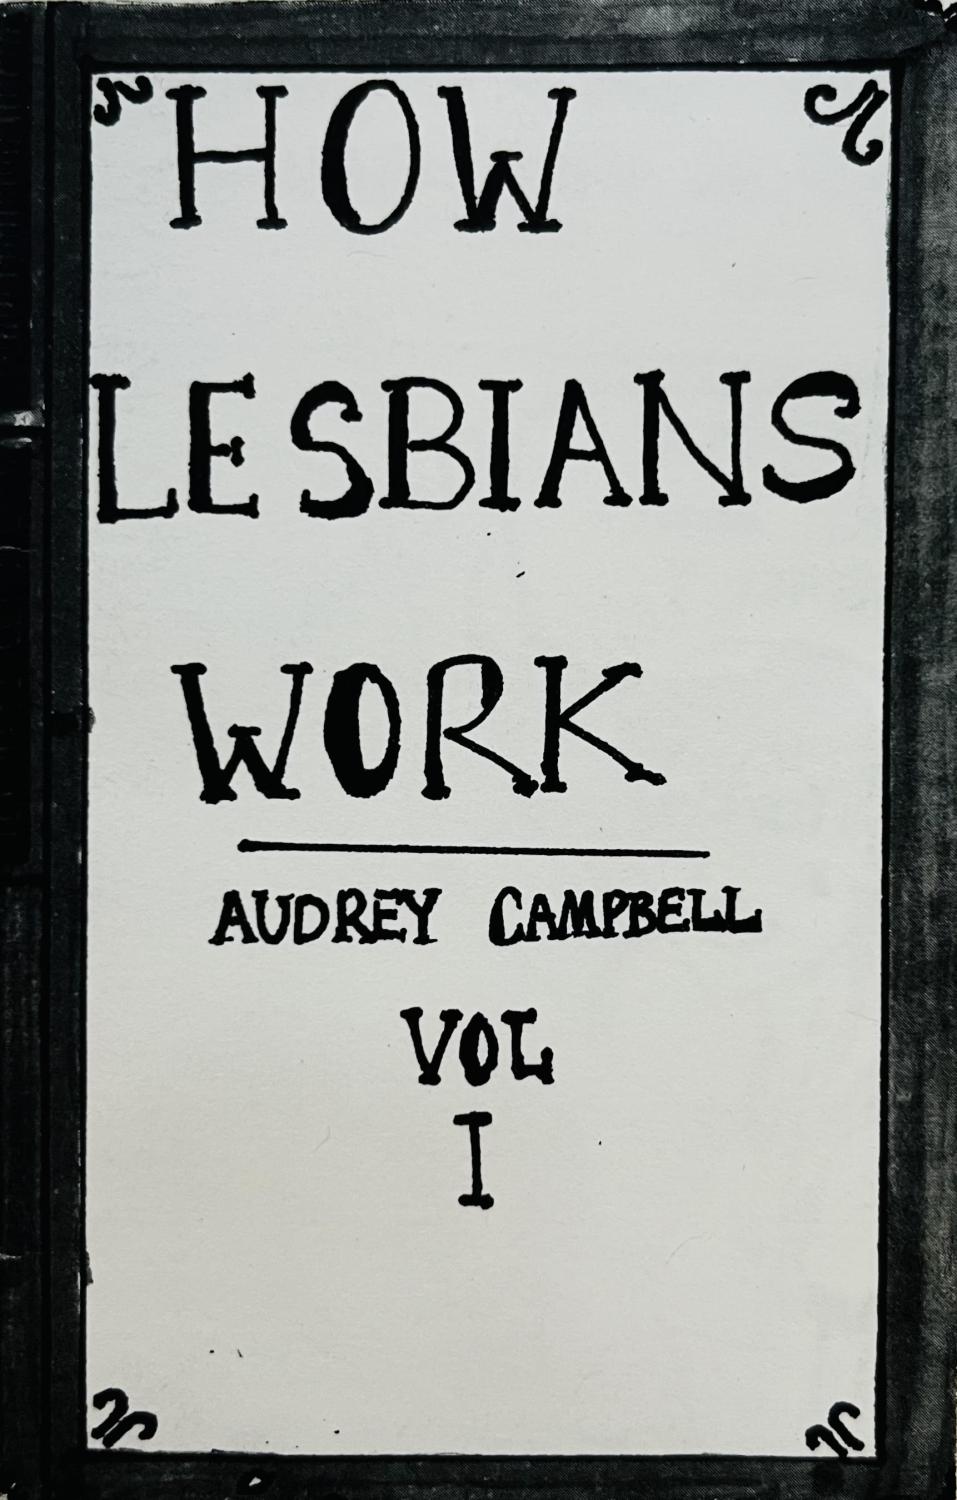 HOW
LESBIANS
WORK
AUDREY CAMPBELL
VOL
I